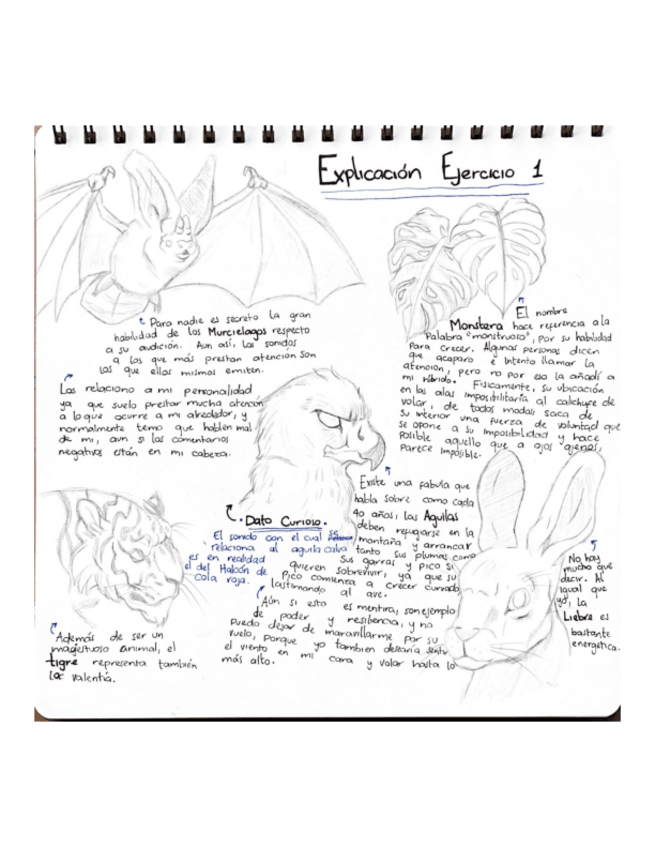 Explicación Ejercicio 1
Para nadie es secreto la gran
habilidad de los Murcielagos respecto
a su audición. Aun así, los sonidos
a los que más prestan atención son
los que ellos mismos emiten.
Los relaciono a mi personalidad
ya que suelo prestar mucha atencion
a lo que ocurre a mi alrededor, y
normalmente temo que hablen mal
de mi, aun si los comentarios
negativos están en mi cabeza.
El nombre
Monstera hace referencia a la
Palabra "monstruoso", por su habilidad
para crecer. Algunas personas dicen
que acaparo e intento llamar la
atención, pero no por eso la añadí a
mi híbrido. Fisicamente, su ubicación
en las alas imposibilitaría al calichupe de
volar, de todos modos saca de
su interior una fuerza de voluntad que
se opone a su imposibilidad y hace
posible aquello que a ojos ajenos,
parece imposible.
Existe una fabula que
habla sobre como cada
40 años, las Aguilas
deben refugiarse en la
montaña y arrancar
tanto sus plumas como
sus garras y pico si
quieren sobrevivir, ya que su
pico comienza a crecer curvado
lastimando al ave.
Aún si esto es mentira, son ejemplo
de poder y resiliencia, y no
puedo dejar de maravillarme por su
vuelo, porque yo tambien desearia sentir
el viento en mi cara y volar hasta lo
más alto.
• Dato Curioso.
El sonido con el cual se
relaciona al aguila calva
es en realidad
el del Halcón de
cola roja.
Además de ser un
magestuoso animal, el
tigre representa también
la valentia.
No hay
mucho que
decir. Al
igual que
yo, la
Liebre es
bastante
energética.